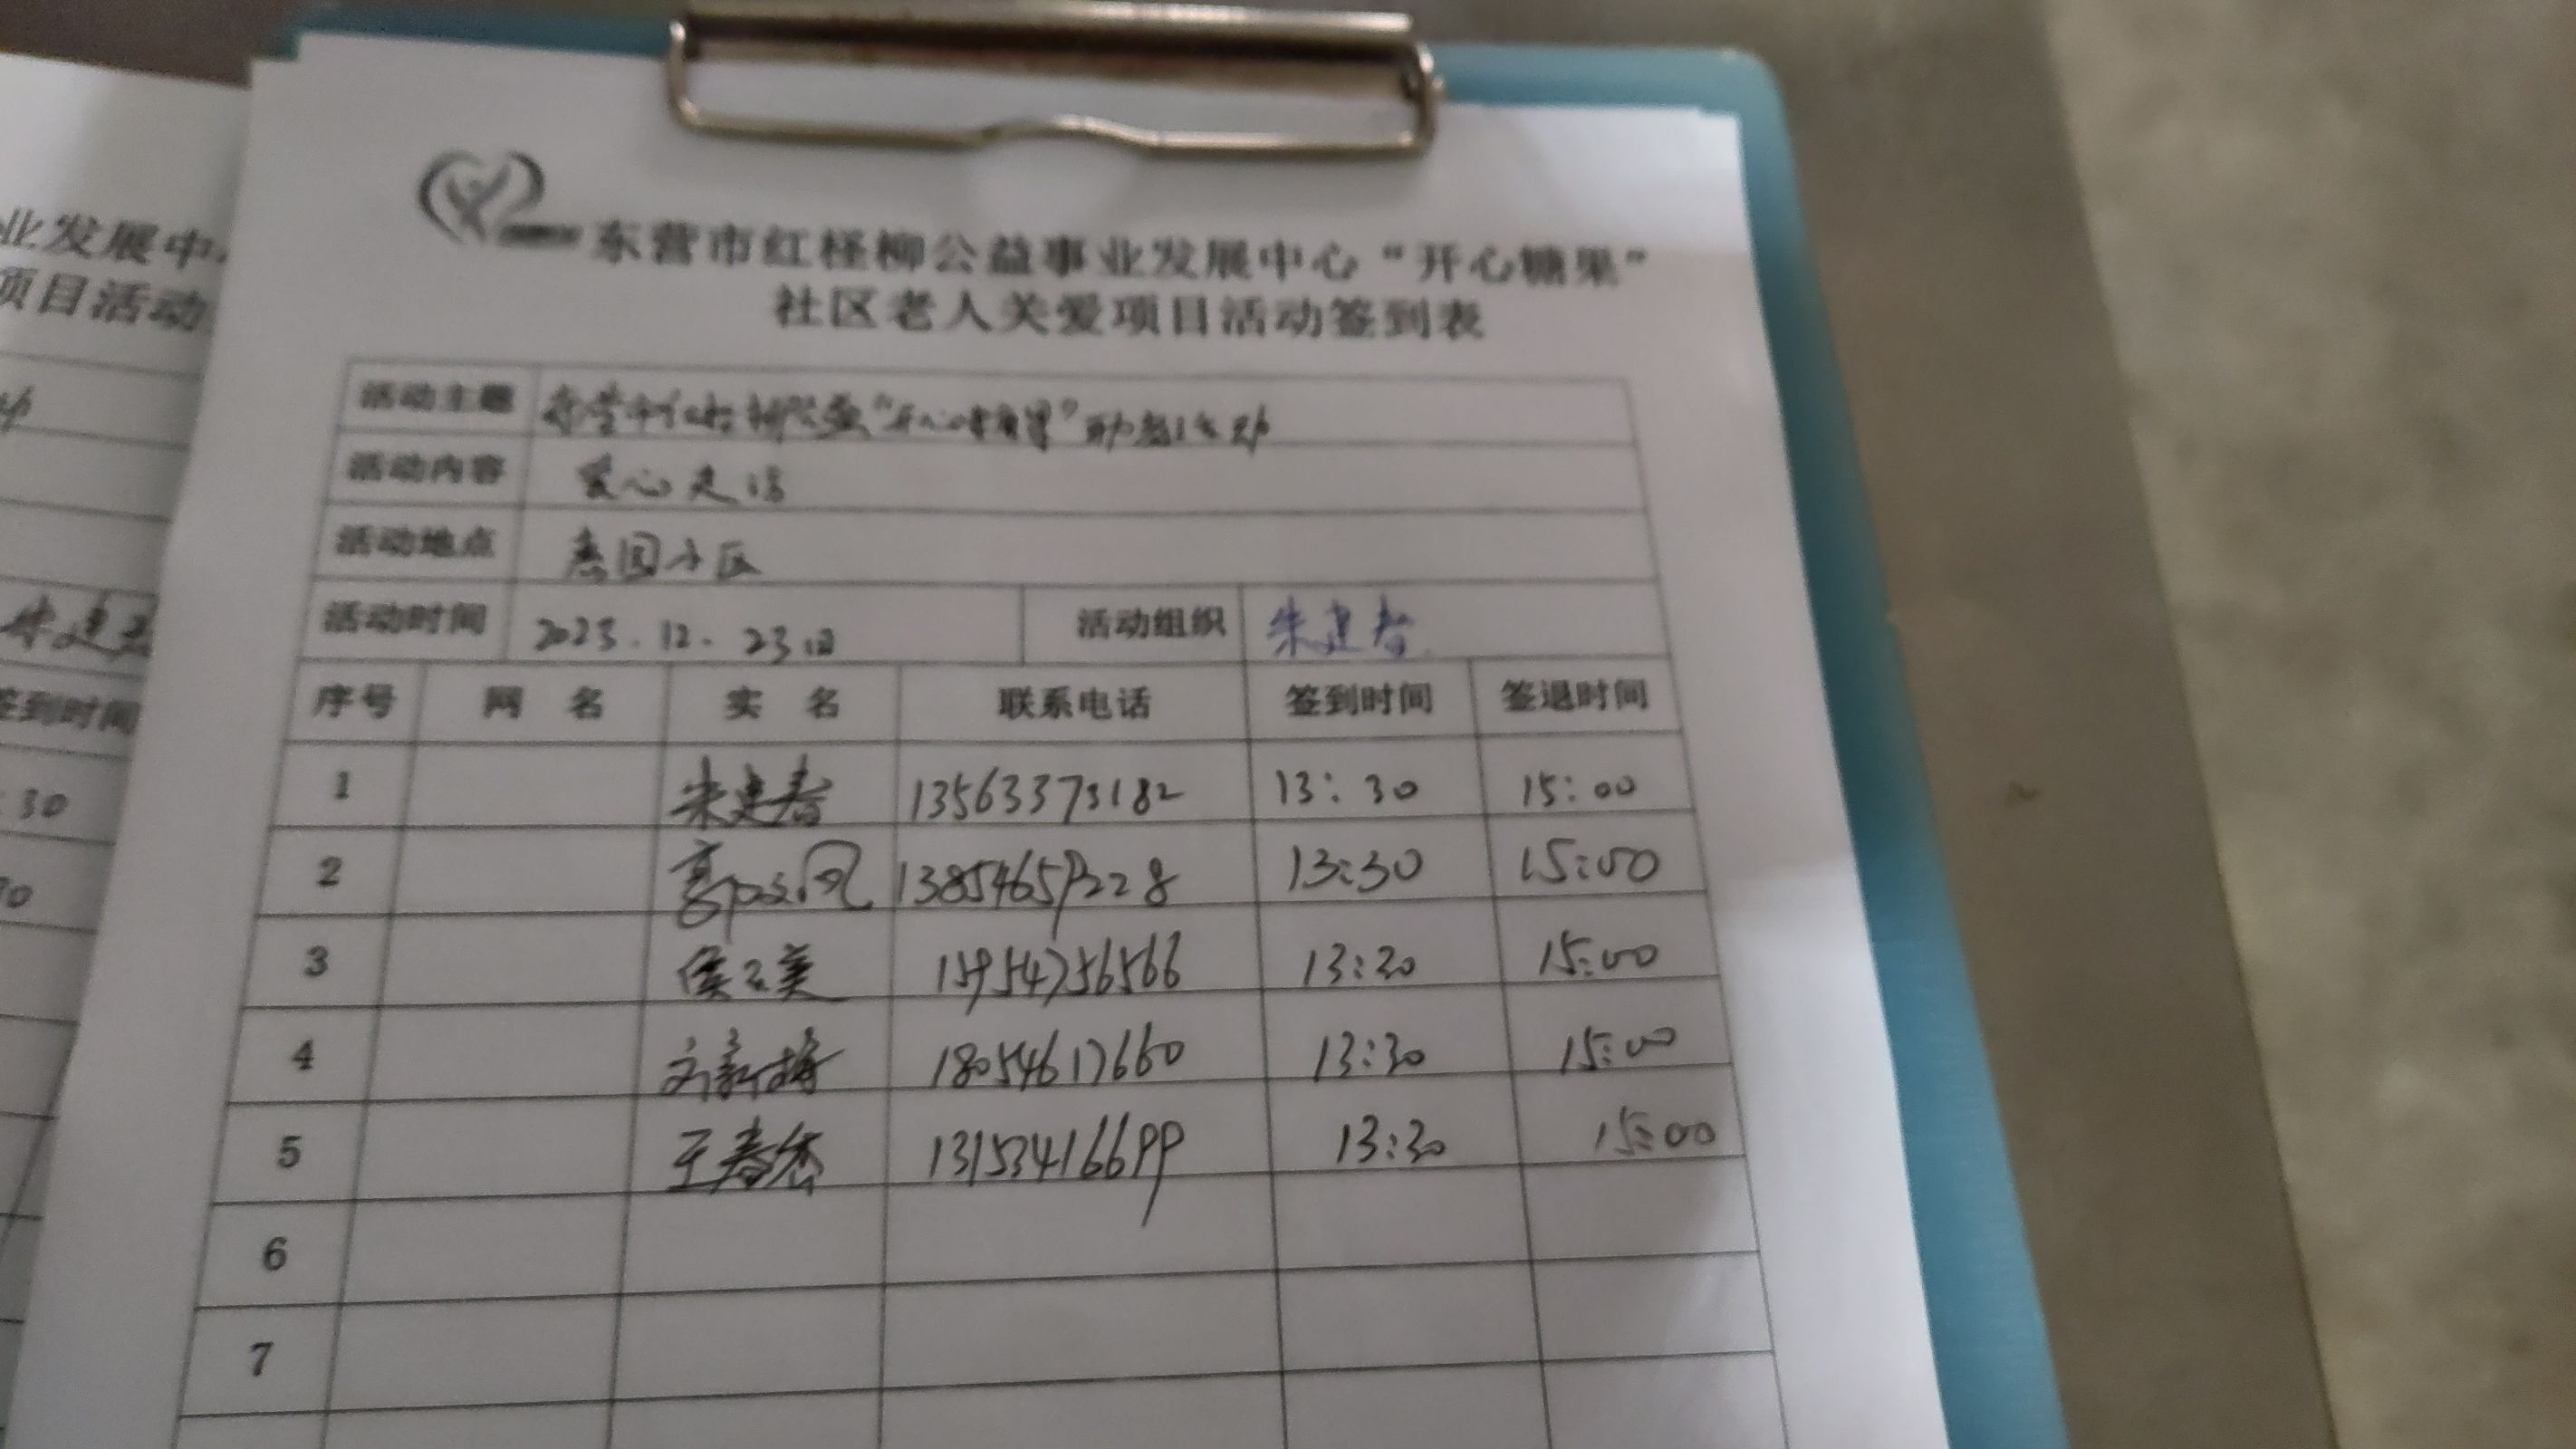 业发展中
项目活动
签到时间
30
东营市红柽柳公益事业发展中心“开心糖果”
社区老人关爱项目活动签到表
活动主题 东营市红柽柳公益“开心糖果”助老活动
活动内容 爱心走访
活动地点 惠园小区
活动时间 2023.12.23日 活动组织 朱建春
序号 网 名 实 名 联系电话 签到时间 签退时间
1 朱建春 13563373182 13:30 15:00
2 13854659228 13:30 15:00
3 侯云美 15954756566 13:30 15:00
4 刘新梅 18054617660 13:30 15:00
5 王春 13153416699 13:30 15:00
6
7